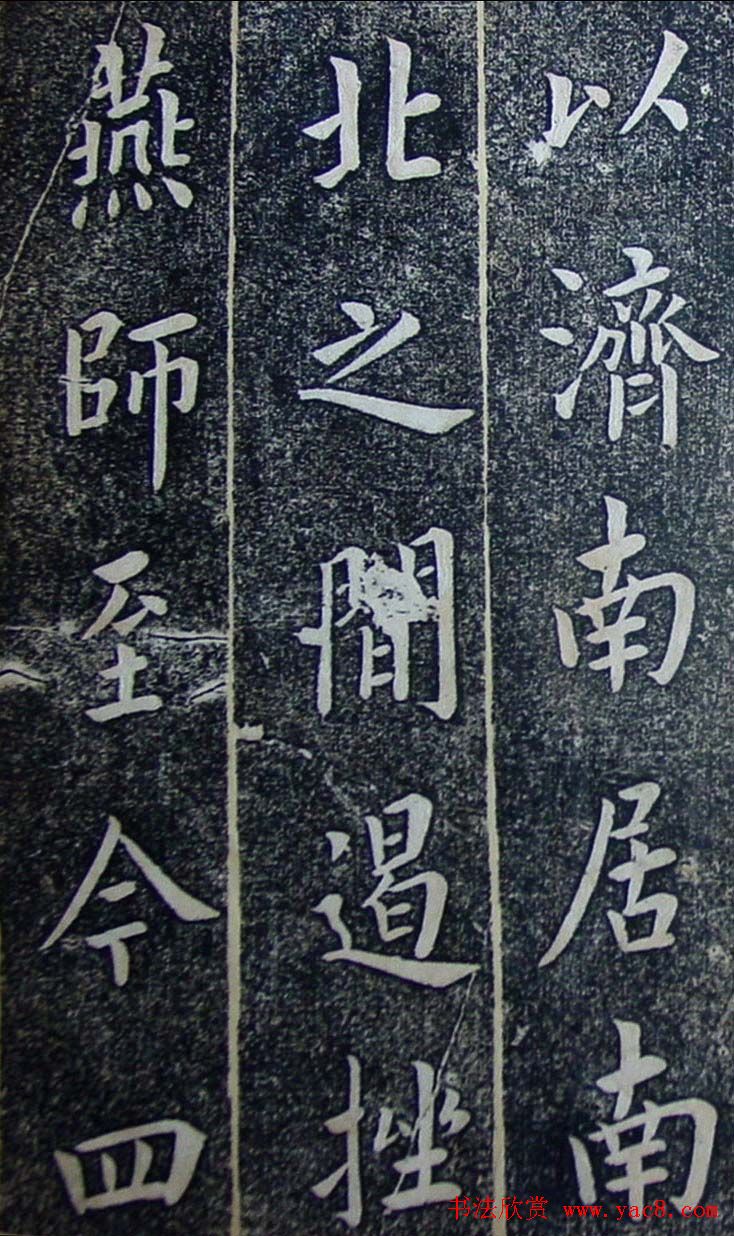 以濟南居南
北之間遏挫
燕師至今四
书法欣赏 www.yac8.com